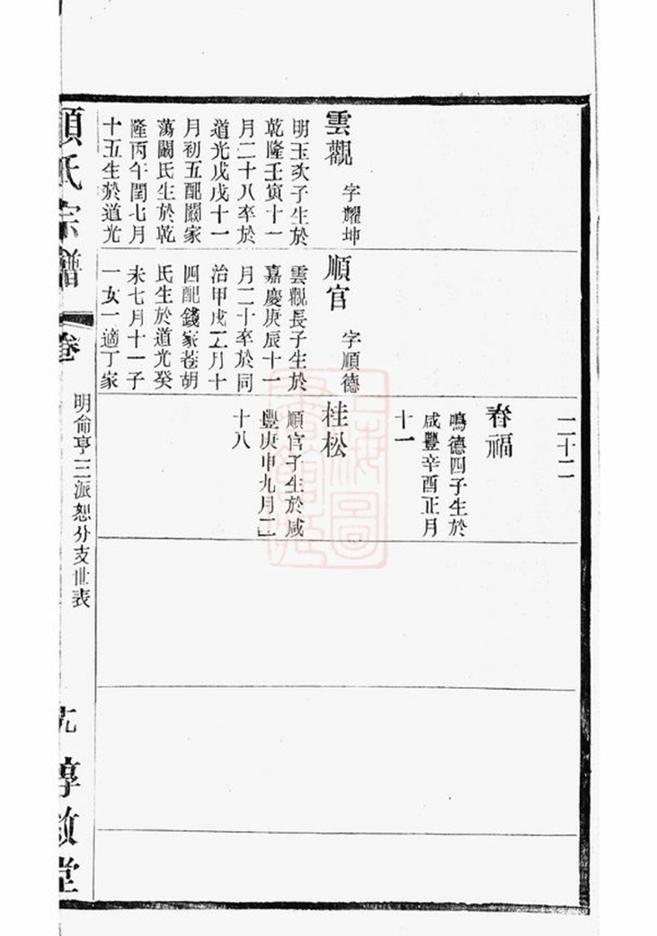 雲觀 字耀坤
明玉次子生於
乾隆壬寅十一
月二十八卒於
道光戊戌十一
月初五配闞家
蕩闞氏生於乾
隆丙午閏七月
十五生於道光
順官 字順德
雲觀長子生於
嘉慶庚辰十一
月二十卒於同
治甲戌月十
四配錢家巷胡
氏生於道光癸
未七月十一子
一女一適丁家
二十二
春福
鳴德四子生於
咸豐辛酉正月
十一
桂松
順官子生於咸
豐庚申九月二
十八
氏宗譜 卷
明侖亨三派恕分支世表
惇敘堂